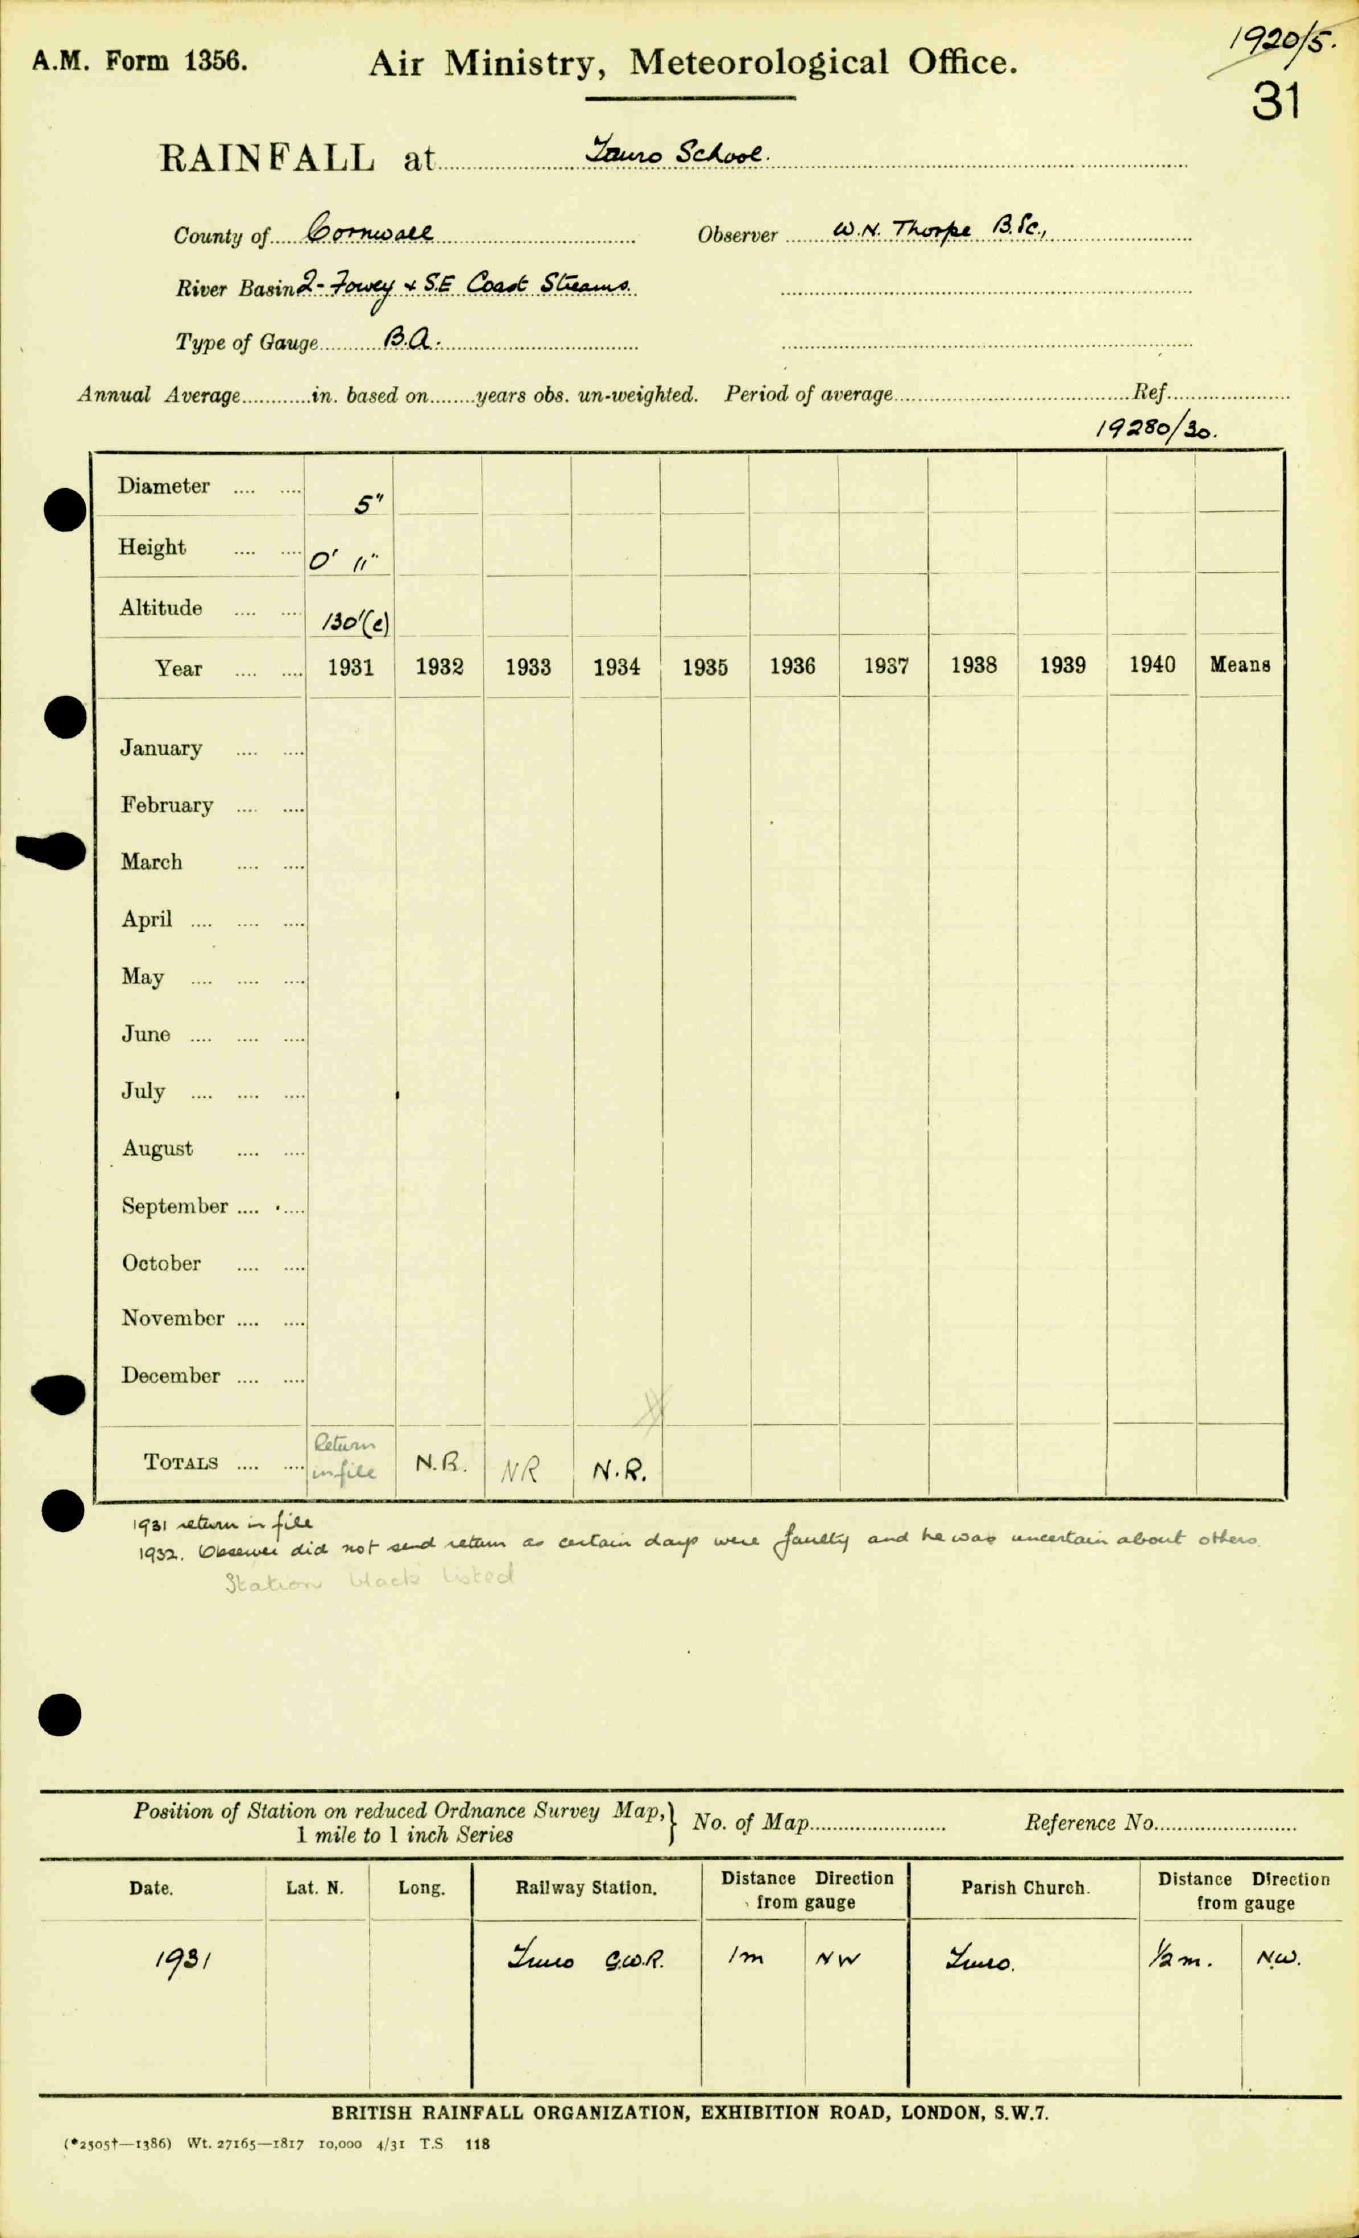 A.M. Form 1356.
Air Ministry, Meteorological Office.
1920/5.
31
RAINFALL at Truro School.
County of Cornwall
Observer W.N. Thorpe B.Sc.,
River Basin 2- Fowey & S.E Coast Streams.
Type of Gauge B.A.
Annual Average in. based on years obs. un-weighted. Period of average Ref.
19280/30.
Diameter 5"
Height 0' 11"
Altitude 130'(c)
Year 1931 1932 1933 1934 1935 1936 1937 1938 1939 1940 Means
January
February
March
April
May
June
July
August
September
October
November
December
TOTALS Return in file N.R. NR N.R.
1931 return in file
1932. Observer did not send return as certain days were faulty and he was uncertain about others.
Station black listed
Position of Station on reduced Ordnance Survey Map, 1 mile to 1 inch Series } No. of Map Reference No.
Date. Lat. N. Long. Railway Station. Distance Direction from gauge Parish Church. Distance Direction from gauge
1931 Truro G.W.R. 1m NW Truro. ½ m. N.W.
BRITISH RAINFALL ORGANIZATION, EXHIBITION ROAD, LONDON, S.W.7.
(*2505†—1386) Wt. 27165—1817 10,000 4/31 T.S 118